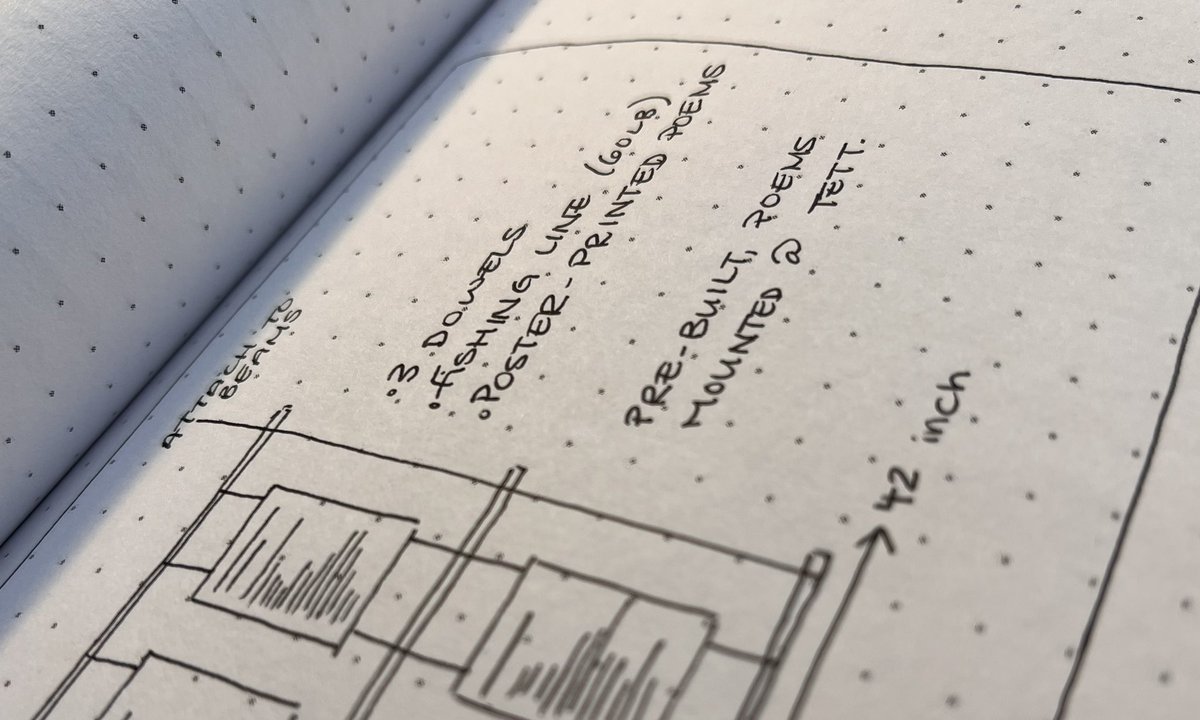 ATTACH TO
BEAMS
• 3 DOWELS
• FISHING LINE (60LB)
• POSTER-PRINTED POEMS
PRE-BUILT, POEMS
MOUNTED @ TETT.
42 inch